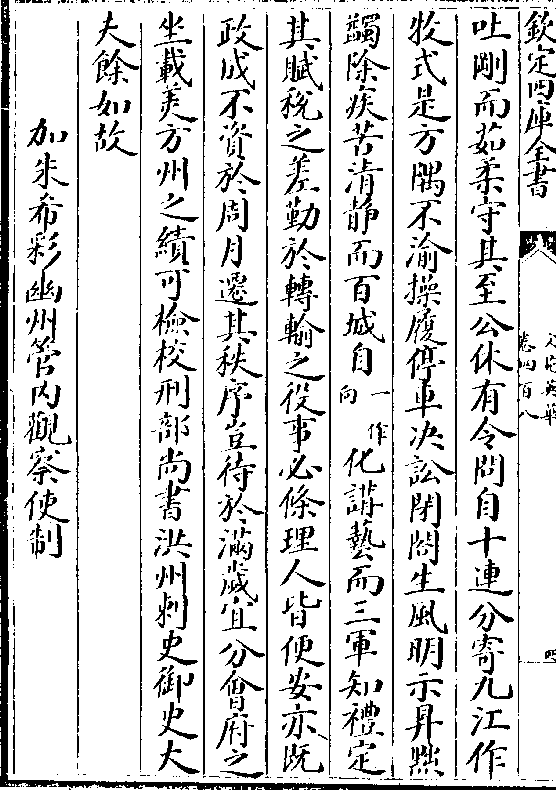 欽定四庫全書
文苑英華
卷四百八
四
吐剛而茹柔守其至公休有令問自十連分寄九江作
牧式是方隅不渝操履停車決訟閉閤生風明示昇黜
蠲除疾苦清靜而百城自一作向化講藝而三軍知禮定
其賦稅之差勤於轉輸之役事必條理人皆便安亦既
政成不資於周月遷其秩序豈待於滿歲宜分會府之
坐載美方州之績可檢校刑部尚書洪州刺史御史大
夫餘如故
加朱希彩幽州管內觀察使制